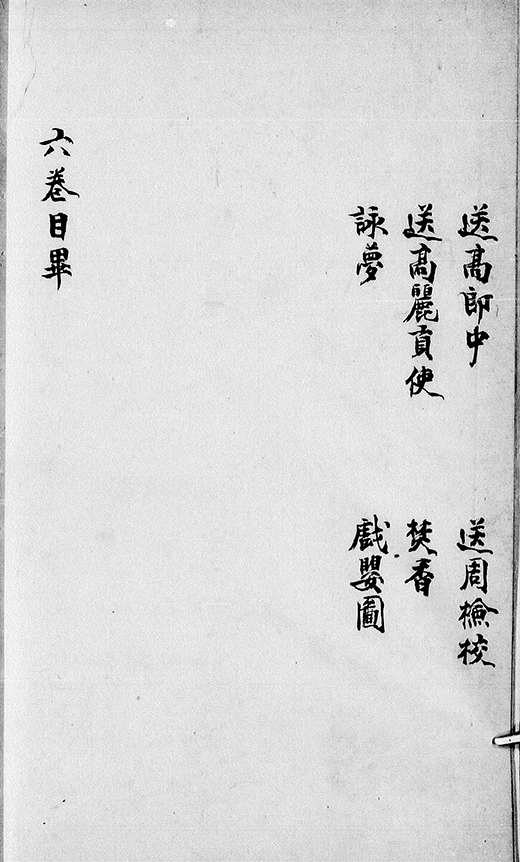 送高郎中
送周檢校
送高麗貢使
焚香
詠夢
戲嬰圖
六卷目畢